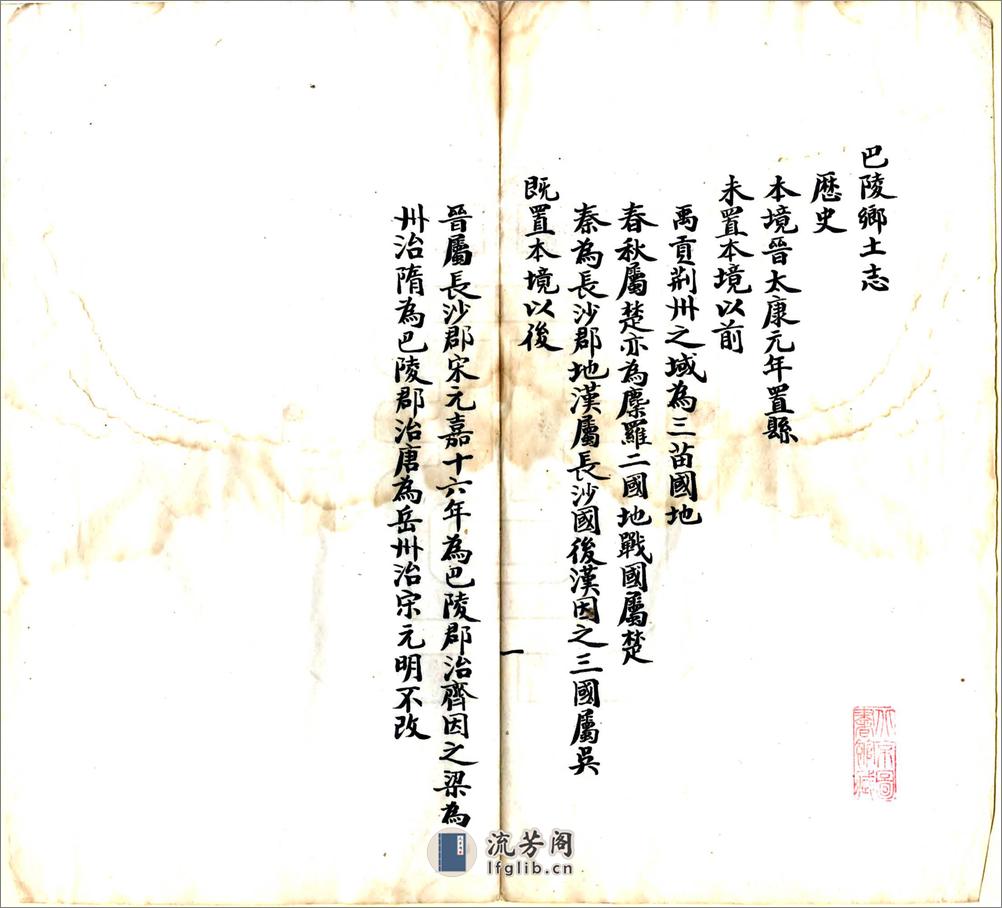 巴陵鄉土志
歷史
本境晉太康元年置縣
未置本境以前
禹貢荊州之域為三苗國地
春秋屬楚亦為麋羅二國地戰國屬楚
秦為長沙郡地漢屬長沙國後漢因之三國屬吳
既置本境以後
一
晉屬長沙郡宋元嘉十六年為巴陵郡治齊因之梁為
州治隋為巴陵郡治唐為岳州治宋元明不改
北京圖
書館藏
流芳阁
lfglib.cn